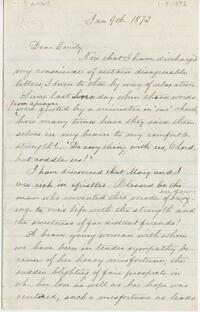 1-9-1872
Jan 9th 1872
Dear Emily
Now that I have discharged
my conscience of certain disagreeable
letters, I turn to thee by way of relaxation.
Since last Lord's day when these words
from a prayer
were quoted by a minister in "our" Church
how many times have they said them
selves in my brain to my comfort &
strength! "Do anything with us, Lord,
but coddle us!"
I have discovered that Mary and I
are rich in epistles. Blessed be the
man who invented this mode of bring
ing to one's life with the strength and
the sweetness of far distant friends!
A brave young woman with whom
we have been in tender sympathy be
cause of her heavy misfortune, the
sudden blighting of fair prospects in
wh. her love as well as her hope was
centered, such a misfortune as leads